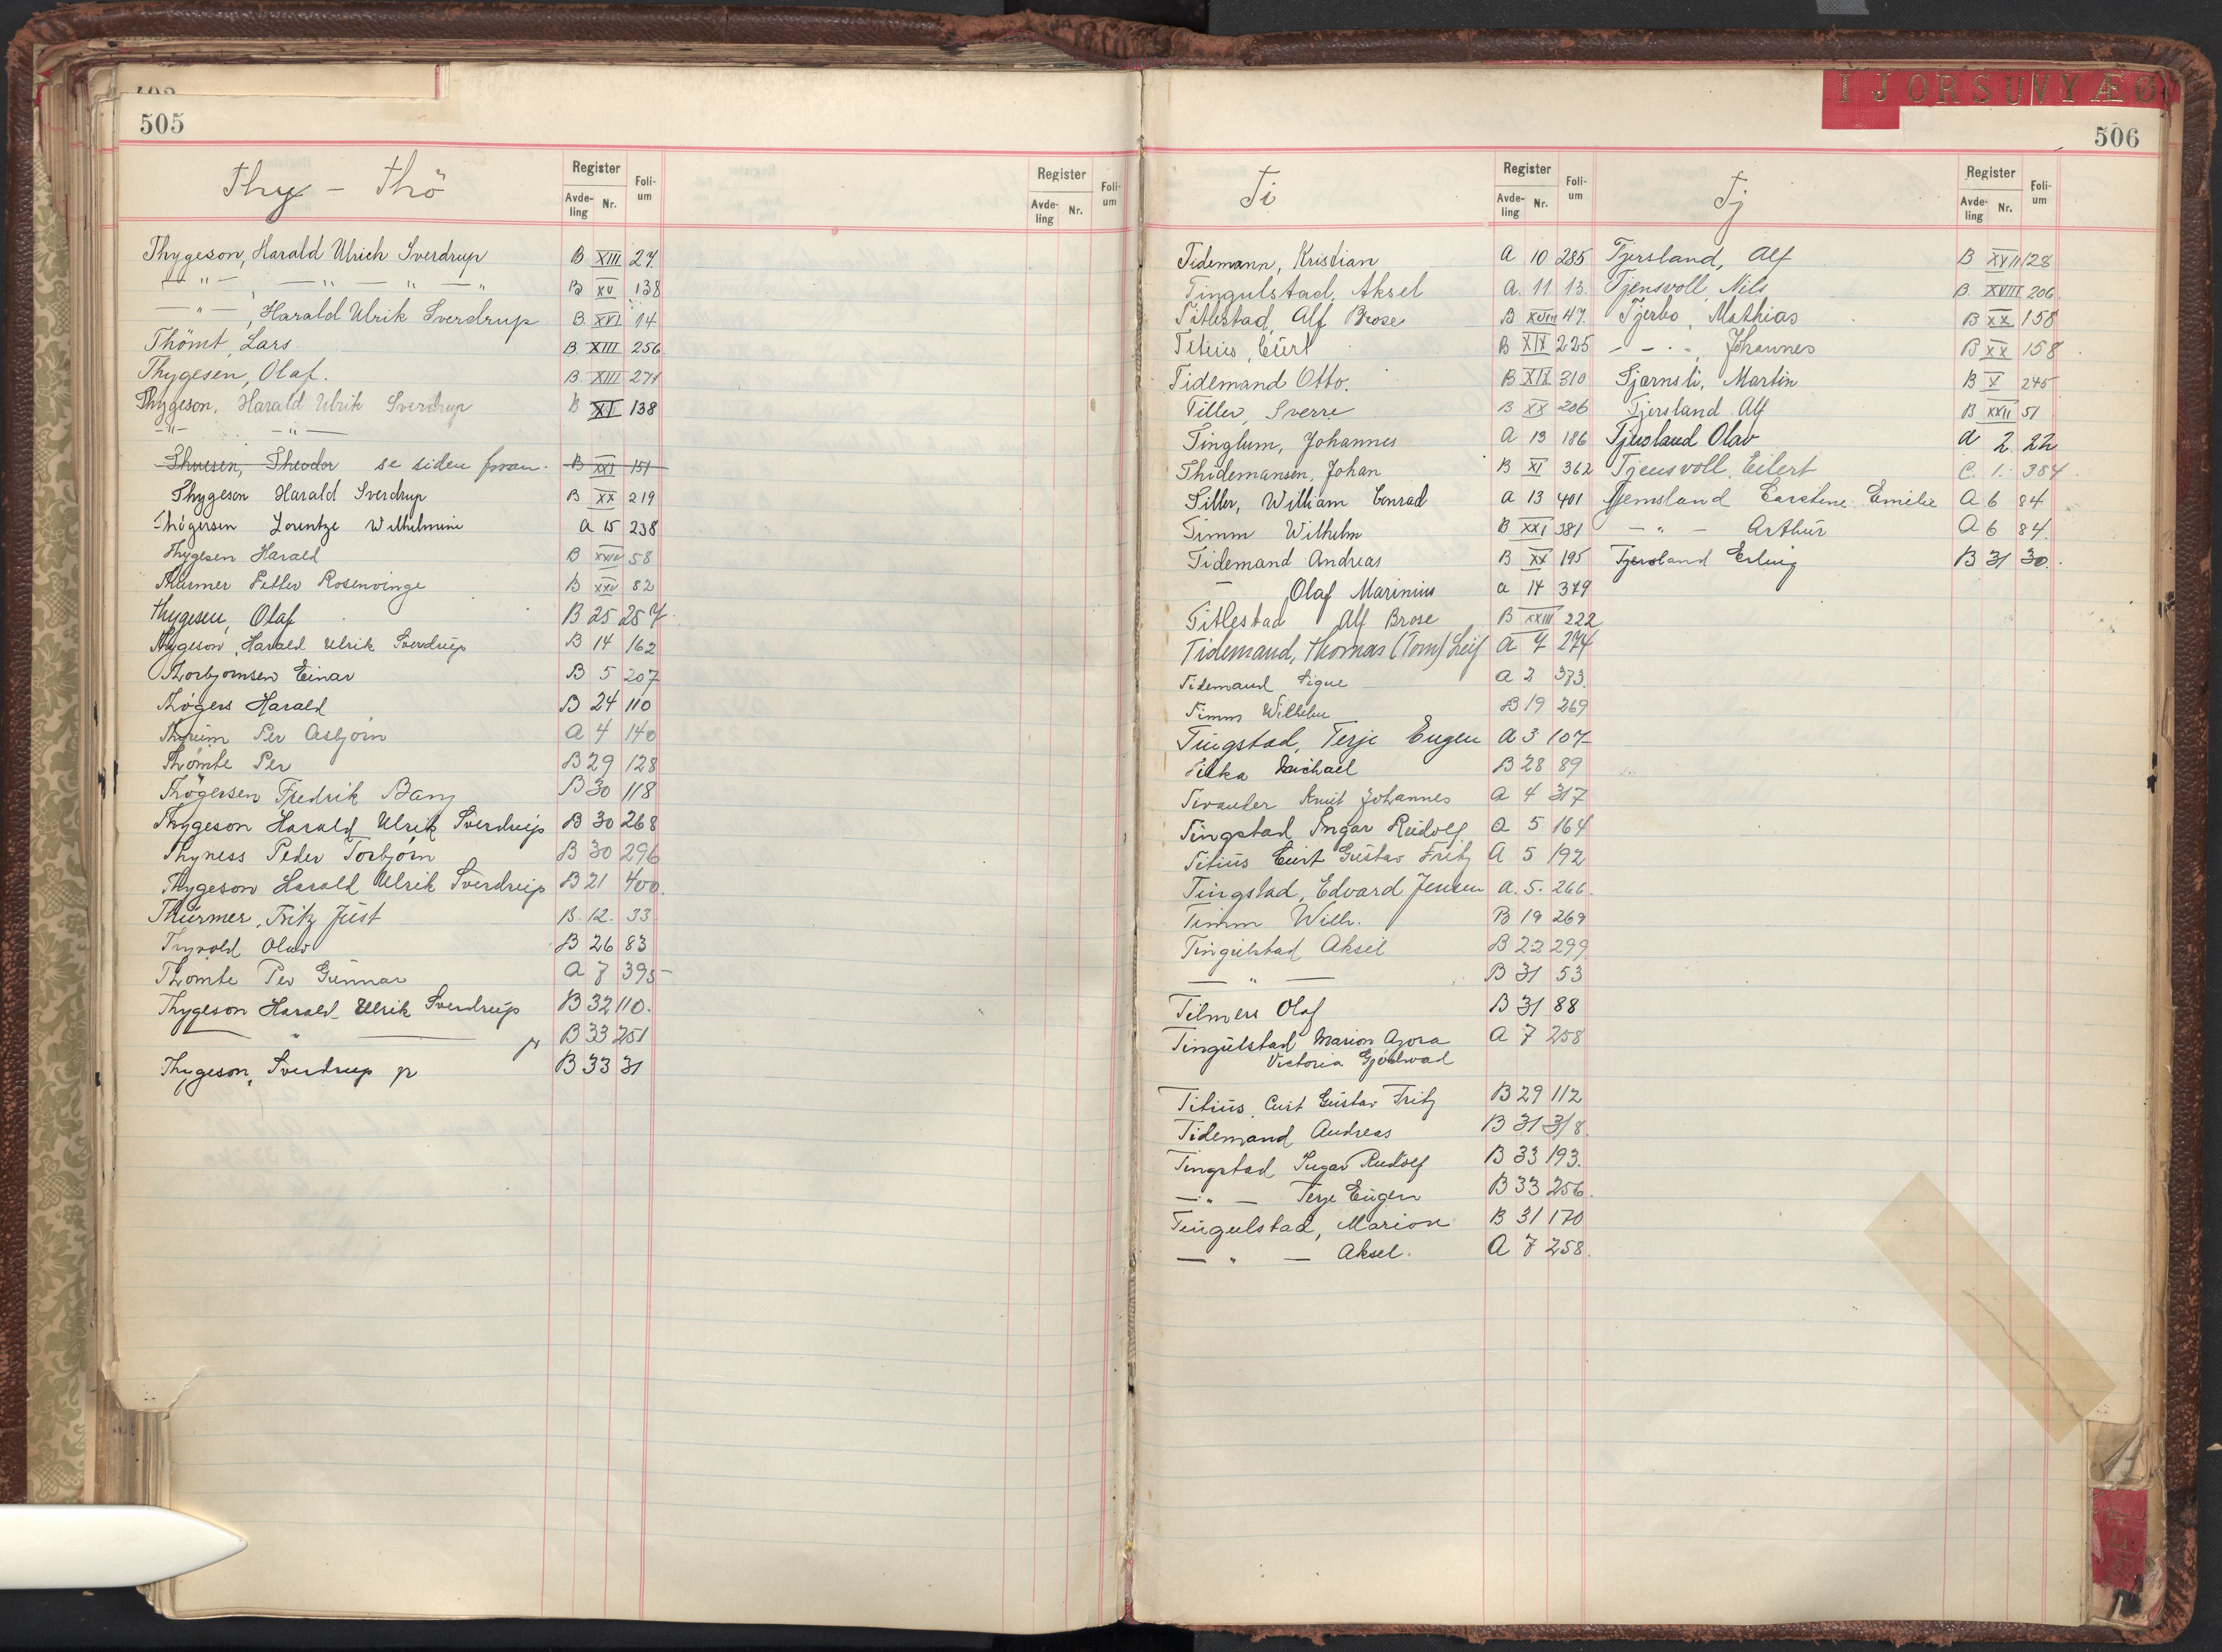 505
Thy - Thö
Register
Avde-ling Nr.
Foli-um
Register
Avde-ling Nr.
Foli-um
Thygeson, Harald Ulrich Sverdrup B XIII 27.
— " — — " — " — " B XV 138
— " —, Harald Ulrik Sverdrup B. XVI 14
Thömt, Lars B. XIII 256.
Thygesen, Olaf. B. XIII 271
Thygeson, Harald Ulrik Sverdrup B XI 138
— " — — " —
Thuesen, Theodor se siden foran. B XXI 151
Thygeson Harald Sverdrup B XX 219
Thögersen Lorentze Wilhelmine A 15 238
Thygesen Harald B 58
Thürmer Petter Rosenvinge B XXV 82
Thygesen, Olaf B 25 257.
Thygeson, Harald Ulrik Sverdrup B 14 162
Thorbjornsen Einar B 5 207
Thögers Harald B 24 110
Per Asbjörn A 4 140
Thömte Per B 29 128
Thögersen Fredrik Bang B 30 118
Thygeson Harald Ulrik Sverdrup B 30 268
Thyness Peder Torbjörn B 30 296
Thygeson Harald Ulrik Sverdrup B 21 400.
Thürmer, Fritz Just B. 12. 33
Thyvold Olav B 26 83
Thomte Per Gunnar A 7 395
Thygeson Harald Ulrik Sverdrup B 32 110.
— " — B 33 251
Thygeson, Sverdrup B 33 31
I J O R S U V Y Æ Ø
506
Ti
Register
Avde-ling Nr.
Foli-um
Tj
Register
Avde-ling Nr.
Foli-um
Tidemann, Kristian A 10 285
Tingulstad, Aksel A. 11. 13.
Titlestad, Alf Brose B XVIII 47.
Titius, Curt B XIX 225
Tidemand Otto. B XIX 310
Tiller, Sverre B XX 206
Tinglum, Johannes A 13 186
Thidemansen, Johan B XI 362
Tiller, William Conrad A 13 401
Timm Wilhelm B XXI 381
Tidemand Andreas B XX 195
— Olaf Marinius A 14 349
Titlestad Alf Brose B XXIII 222
Tidemand, Thomas (Tom) Leif A 7 274
Tidemand Signe A 2 373.
Timm Wilhelm B 19 269
Tingstad, Terje Eugen A 3 107
Michael B 28 89
Knut Johannes A 4 317
Tingstad Ingar Rudolf A 5 164
Titius Curt Gustav Fritz A 5 192
Tingstad, Edvard Jensen A. 5. 266.
Timm Wilh. B 19 269
Tingulstad Aksel B 22 299.
— " — B 31 53
Tilmers Olaf B 31 88
Tingulstad Marion Agora A 7 258
Victoria Gjödwad
Titius, Curt Gustav Fritz B 29 112
Tidemand Andreas B 31 318.
Tingstad Ingar Rudolf B 33 193.
— " — Terje Eugen B 33 256.
Tingulstad, Marion B 31 170
— " — Aksel. A 7 258.
Tjersland, Alf B XVII 128
Tjensvoll, Nils B. XVIII 206.
Tjerbo, Mathias B XX 158
— " —, Johannes B XX 158.
Tjernsli, Martin B X 245
Tjersland Alf B XXII 51
Tjersland Olav A 2. 22
Tjensvoll, Eilert C. 1. 384.
Tjemsland Carstine Emilie A 6 84
— " — Arthur A 6 84.
Tjersland Erling B 31 30.